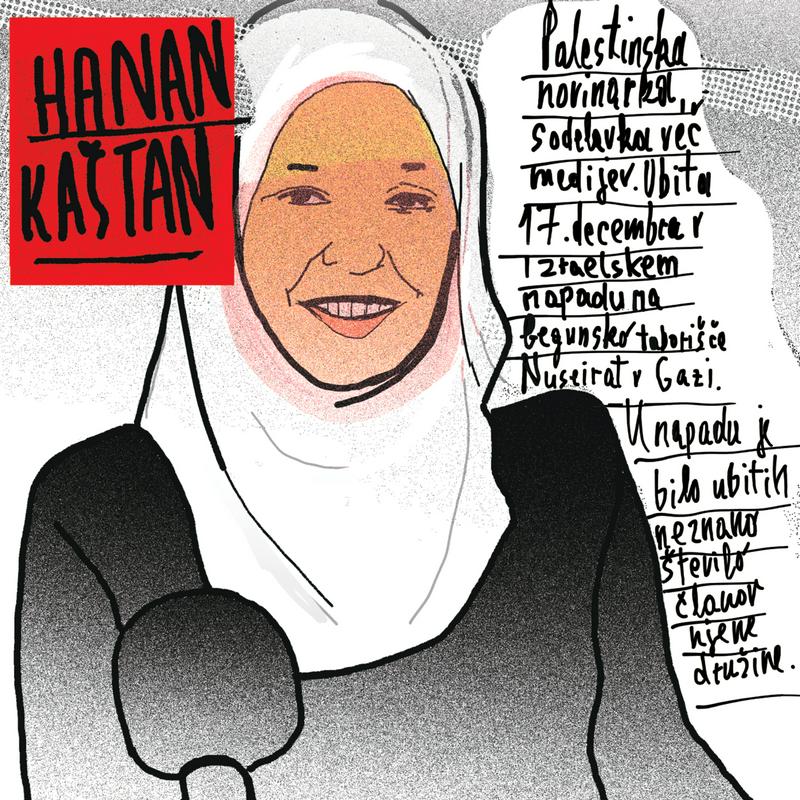 HANAN
KAŠTAN
Palestinska
novinarka,
sodelavka več
medijev. Ubita
17. decembra v
izraelskem
napadu na
begunsko taborišče
Nuseirat v Gazi.
V napadu je
bilo ubitih
neznano
število
članov
njene
družine.